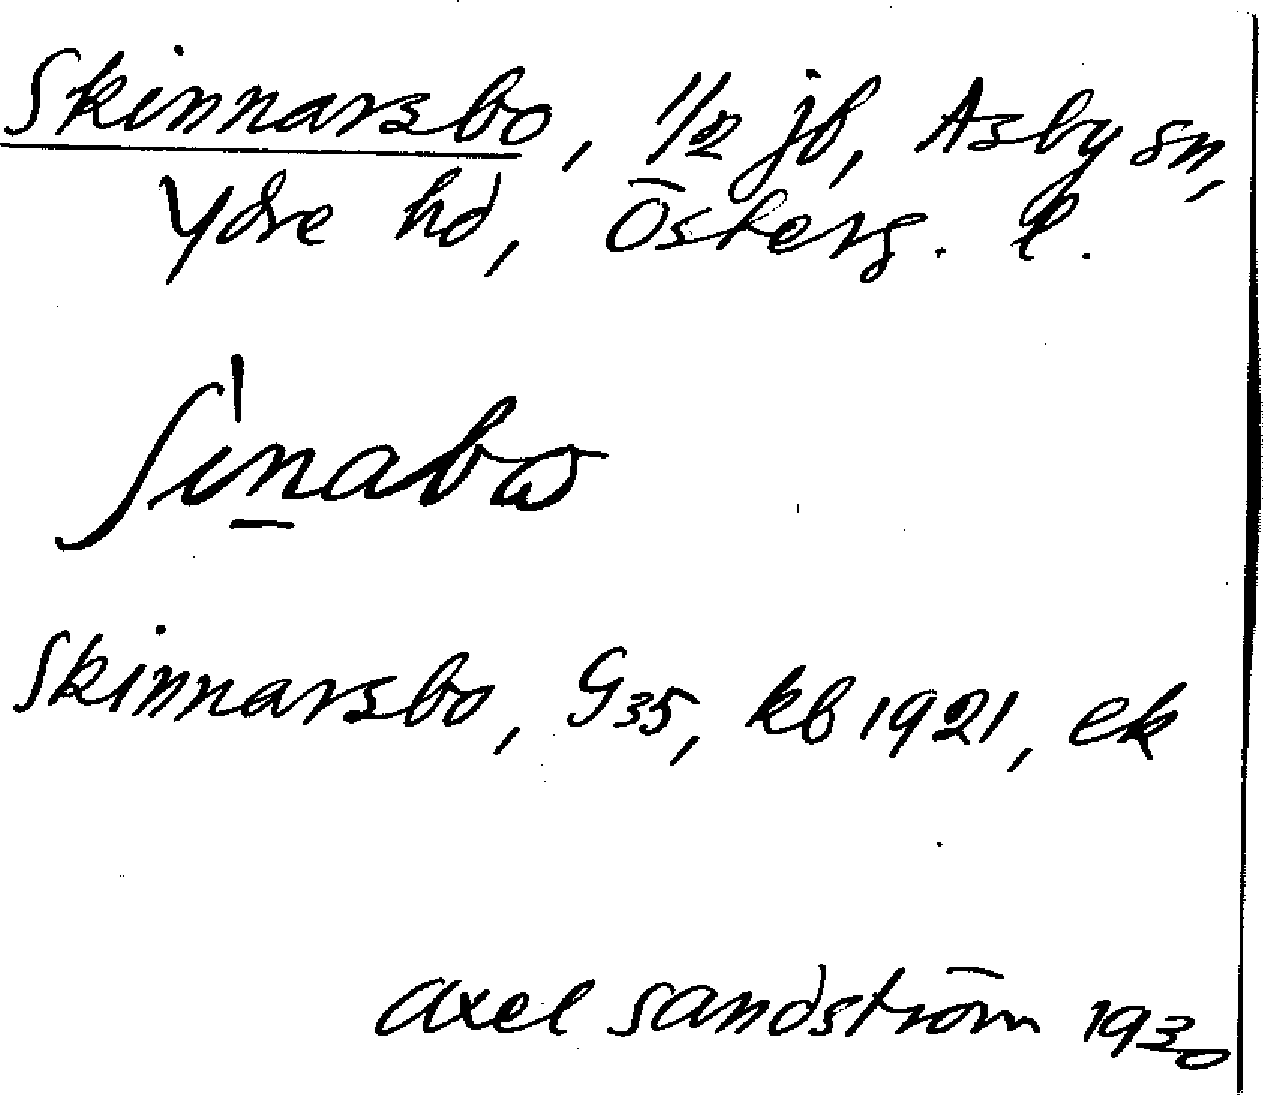 Skinnarsbo, 1/2 jb, Asby sn,
Ydre hd, Österg. l.
Skinnarsbo, G35, kb 1921, ek
axel sandström 1930